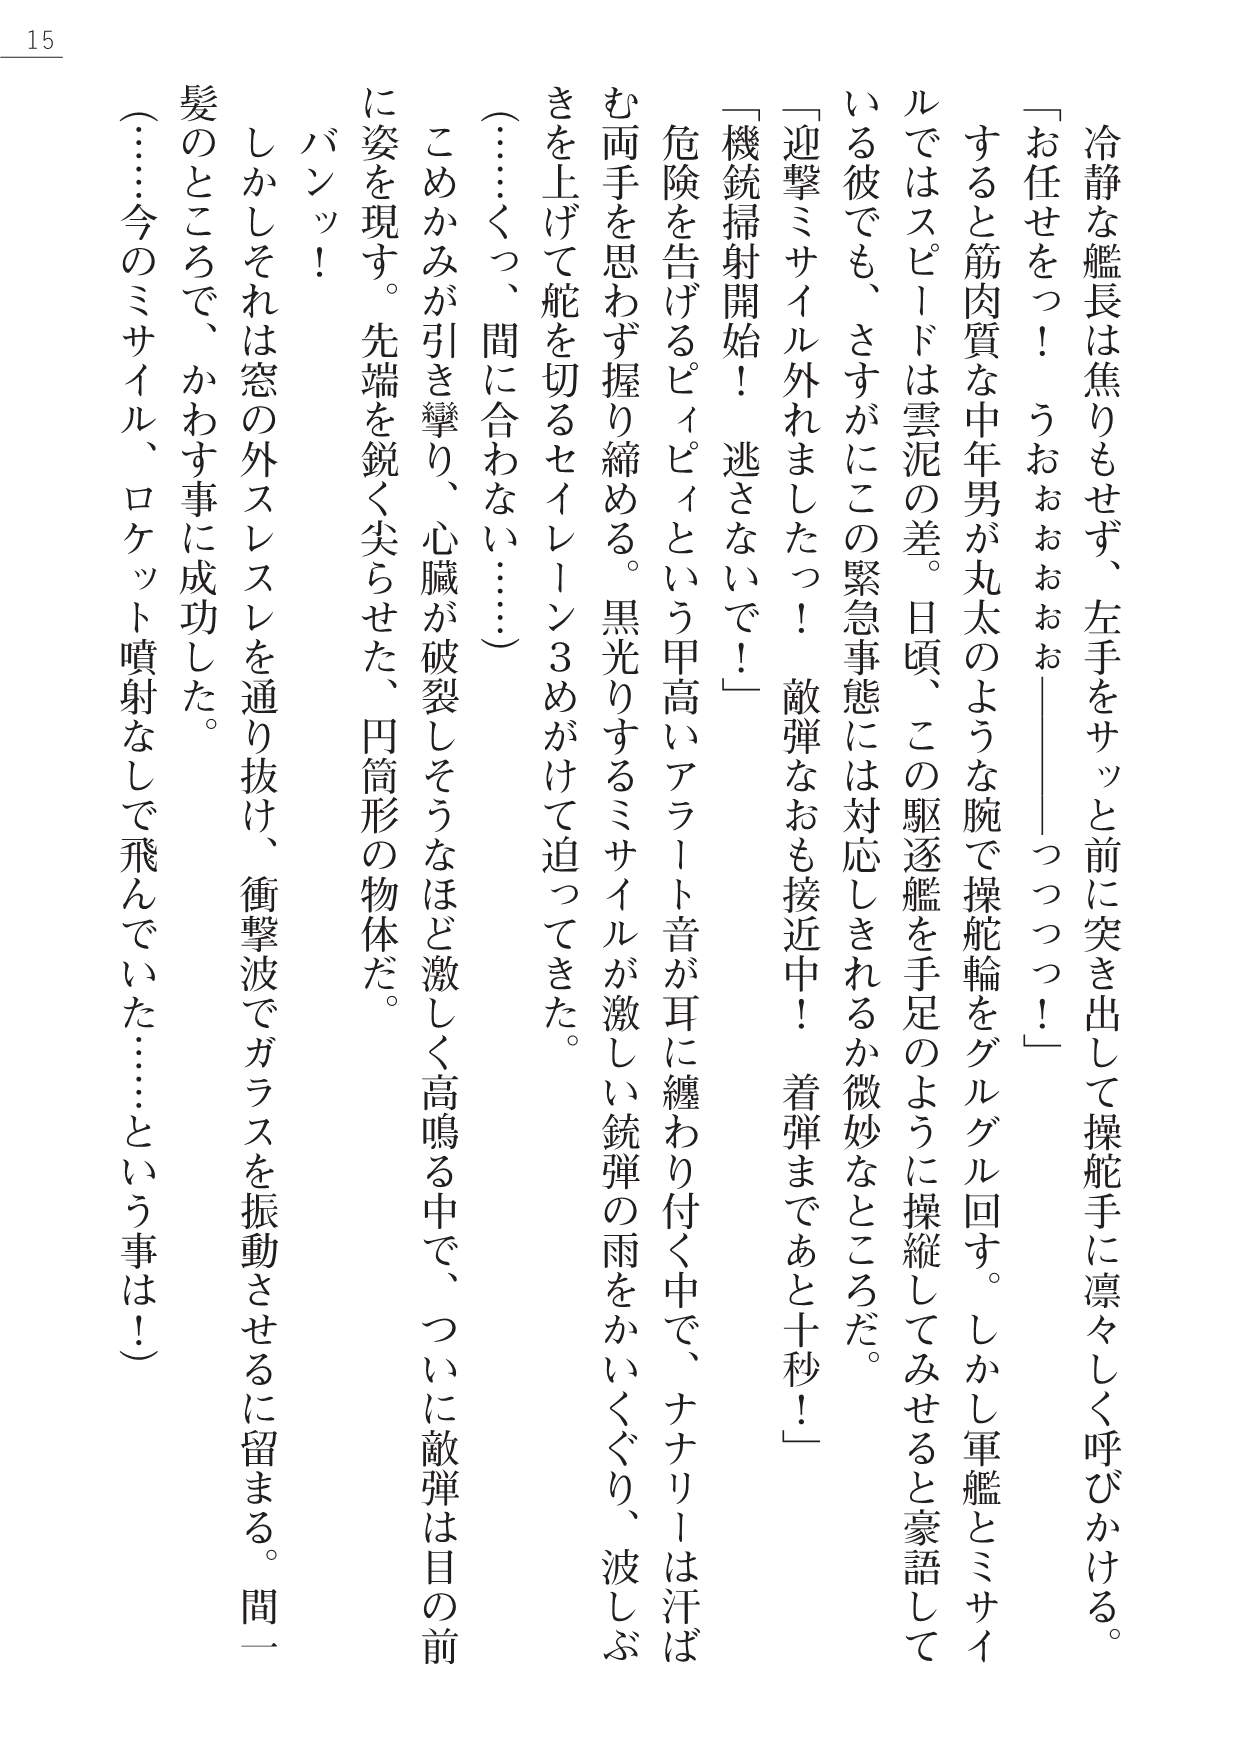 15
　冷静な艦長は焦りもせず、左手をサッと前に突き出して操舵手に凛々しく呼びかける。
「お任せをっ！　うおぉぉぉぉぉ――――っつつつっ！」
　すると筋肉質な中年男が丸太のような腕で操舵輪をグルグル回す。しかし軍艦とミサイ
ルではスピードは雲泥の差。日頃、この駆逐艦を手足のように操縦してみせると豪語して
いる彼でも、さすがにこの緊急事態には対応しきれるか微妙なところだ。
「迎撃ミサイル外れましたっ！　敵弾なおも接近中！　着弾まであと十秒！」
「機銃掃射開始！　逃さないで！」
　危険を告げるピィピィという甲高いアラート音が耳に纏わり付く中で、ナナリーは汗ば
む両手を思わず握り締める。黒光りするミサイルが激しい銃弾の雨をかいくぐり、波しぶ
きを上げて舵を切るセイレーン３めがけて迫ってきた。
（……くっ、間に合わない……）
　こめかみが引き攣り、心臓が破裂しそうなほど激しく高鳴る中で、ついに敵弾は目の前
に姿を現す。先端を鋭く尖らせた、円筒形の物体だ。
　バンッ！
　しかしそれは窓の外スレスレを通り抜け、衝撃波でガラスを振動させるに留まる。間一
髪のところで、かわす事に成功した。
（……今のミサイル、ロケット噴射なしで飛んでいた……という事は！）